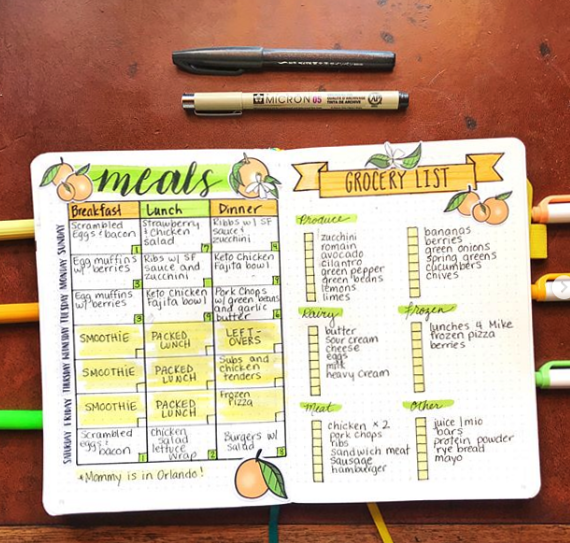 MICRON 05
meals
Breakfast Lunch Dinner
SUNDAY
Scrambled
Eggs & bacon
1
Strawberry
& Chicken
salad
7
Ribbs w/ SF
sauce &
zucchini
4
MONDAY
Egg muffins
w/ berries
3
Ribs w/ SF
sauce and
zucchini
4
Keto Chicken
Fajita bowl
7
TUESDAY
Egg muffins
w/ berries
3
Keto Chicken
Fajita bowl
Pork Chops
w/ green beans
and garlic
butter
6
WEDNESDAY
SMOOTHIE
PACKED
LUNCH
LEFT-
OVERS
THURSDAY
SMOOTHIE
PACKED
LUNCH
Subs and
chicken
tenders
FRIDAY
SMOOTHIE
PACKED
LUNCH
Frozen
Pizza
SATURDAY
Scrambled
eggs &
bacon
1
Chicken
salad
lettuce
wrap
2
Burgers w/
salad
*Mommy is in Orlando!
GROCERY LIST
Produce
zucchini
romain
avocado
cilantro
green pepper
green beans
lemons
limes
bananas
berries
green onions
spring greens
cucumbers
chives
Dairy
butter
sour cream
cheese
eggs
milk
heavy cream
Frozen
lunches 4 Mike
frozen pizza
berries
Meat
chicken x 2
pork chops
ribs
sandwich meat
sausage
hamburger
Other
juice/mio
bars
protein powder
rye bread
mayo